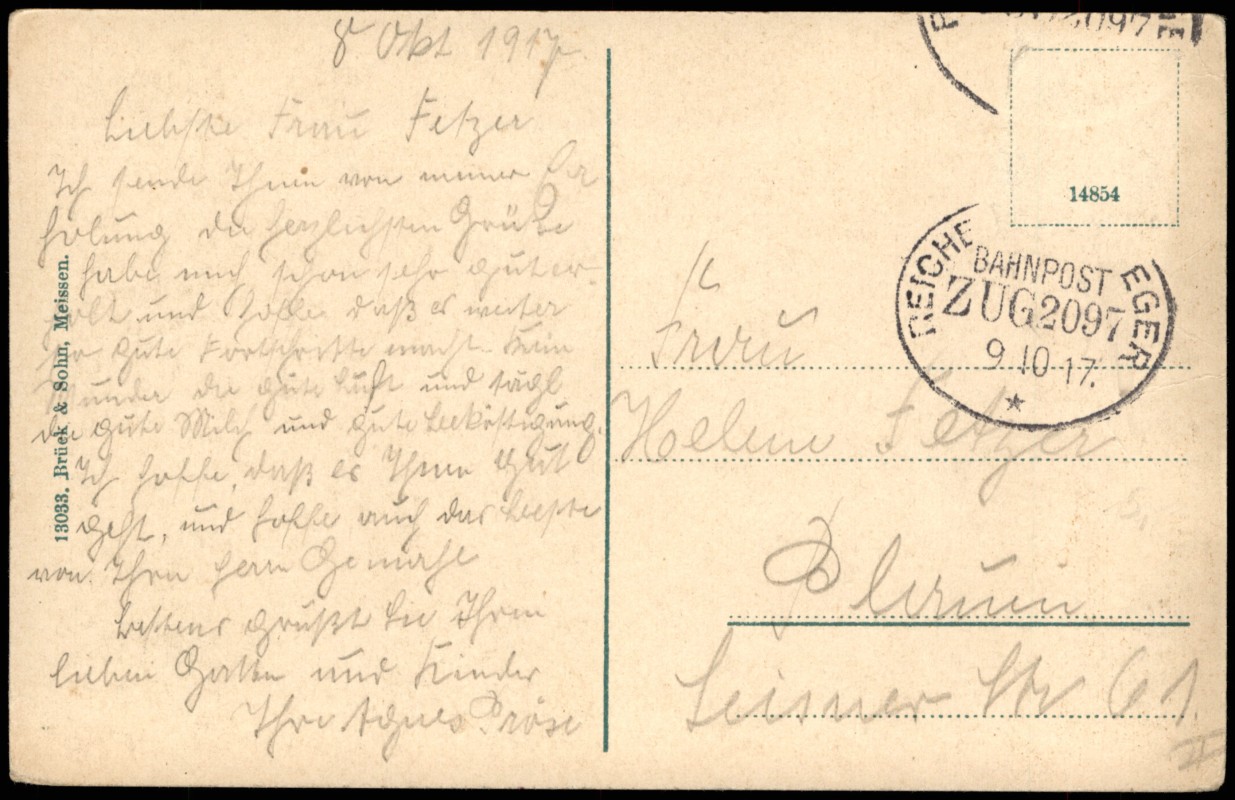 8 Okt 1917
Liebste Frau Fetzer
Ich sende Ihnen von meiner Er
holung die herzlichsten Grüße
habe mich schon sehr gut er
holt und hoffe daß es weiter
so gute Fortschritte macht. Kein
Wunder die gute Luft und tägl
die gute Milch und gute Beköstigung.
Ich hoffe, daß es Ihnen gut
geht, und hoffe auch das beste
von Ihren Herrn Gemahl
Bestens grüßt Sie Ihren
lieben Gatten und Kinder
Ihre Agnes
13033. Brück & Sohn, Meissen.
2097
14854
REICHE EGER
BAHNPOST
ZUG2097
9.10.17.
Frau
Helene Fetzer
Plauen
Str 61
II